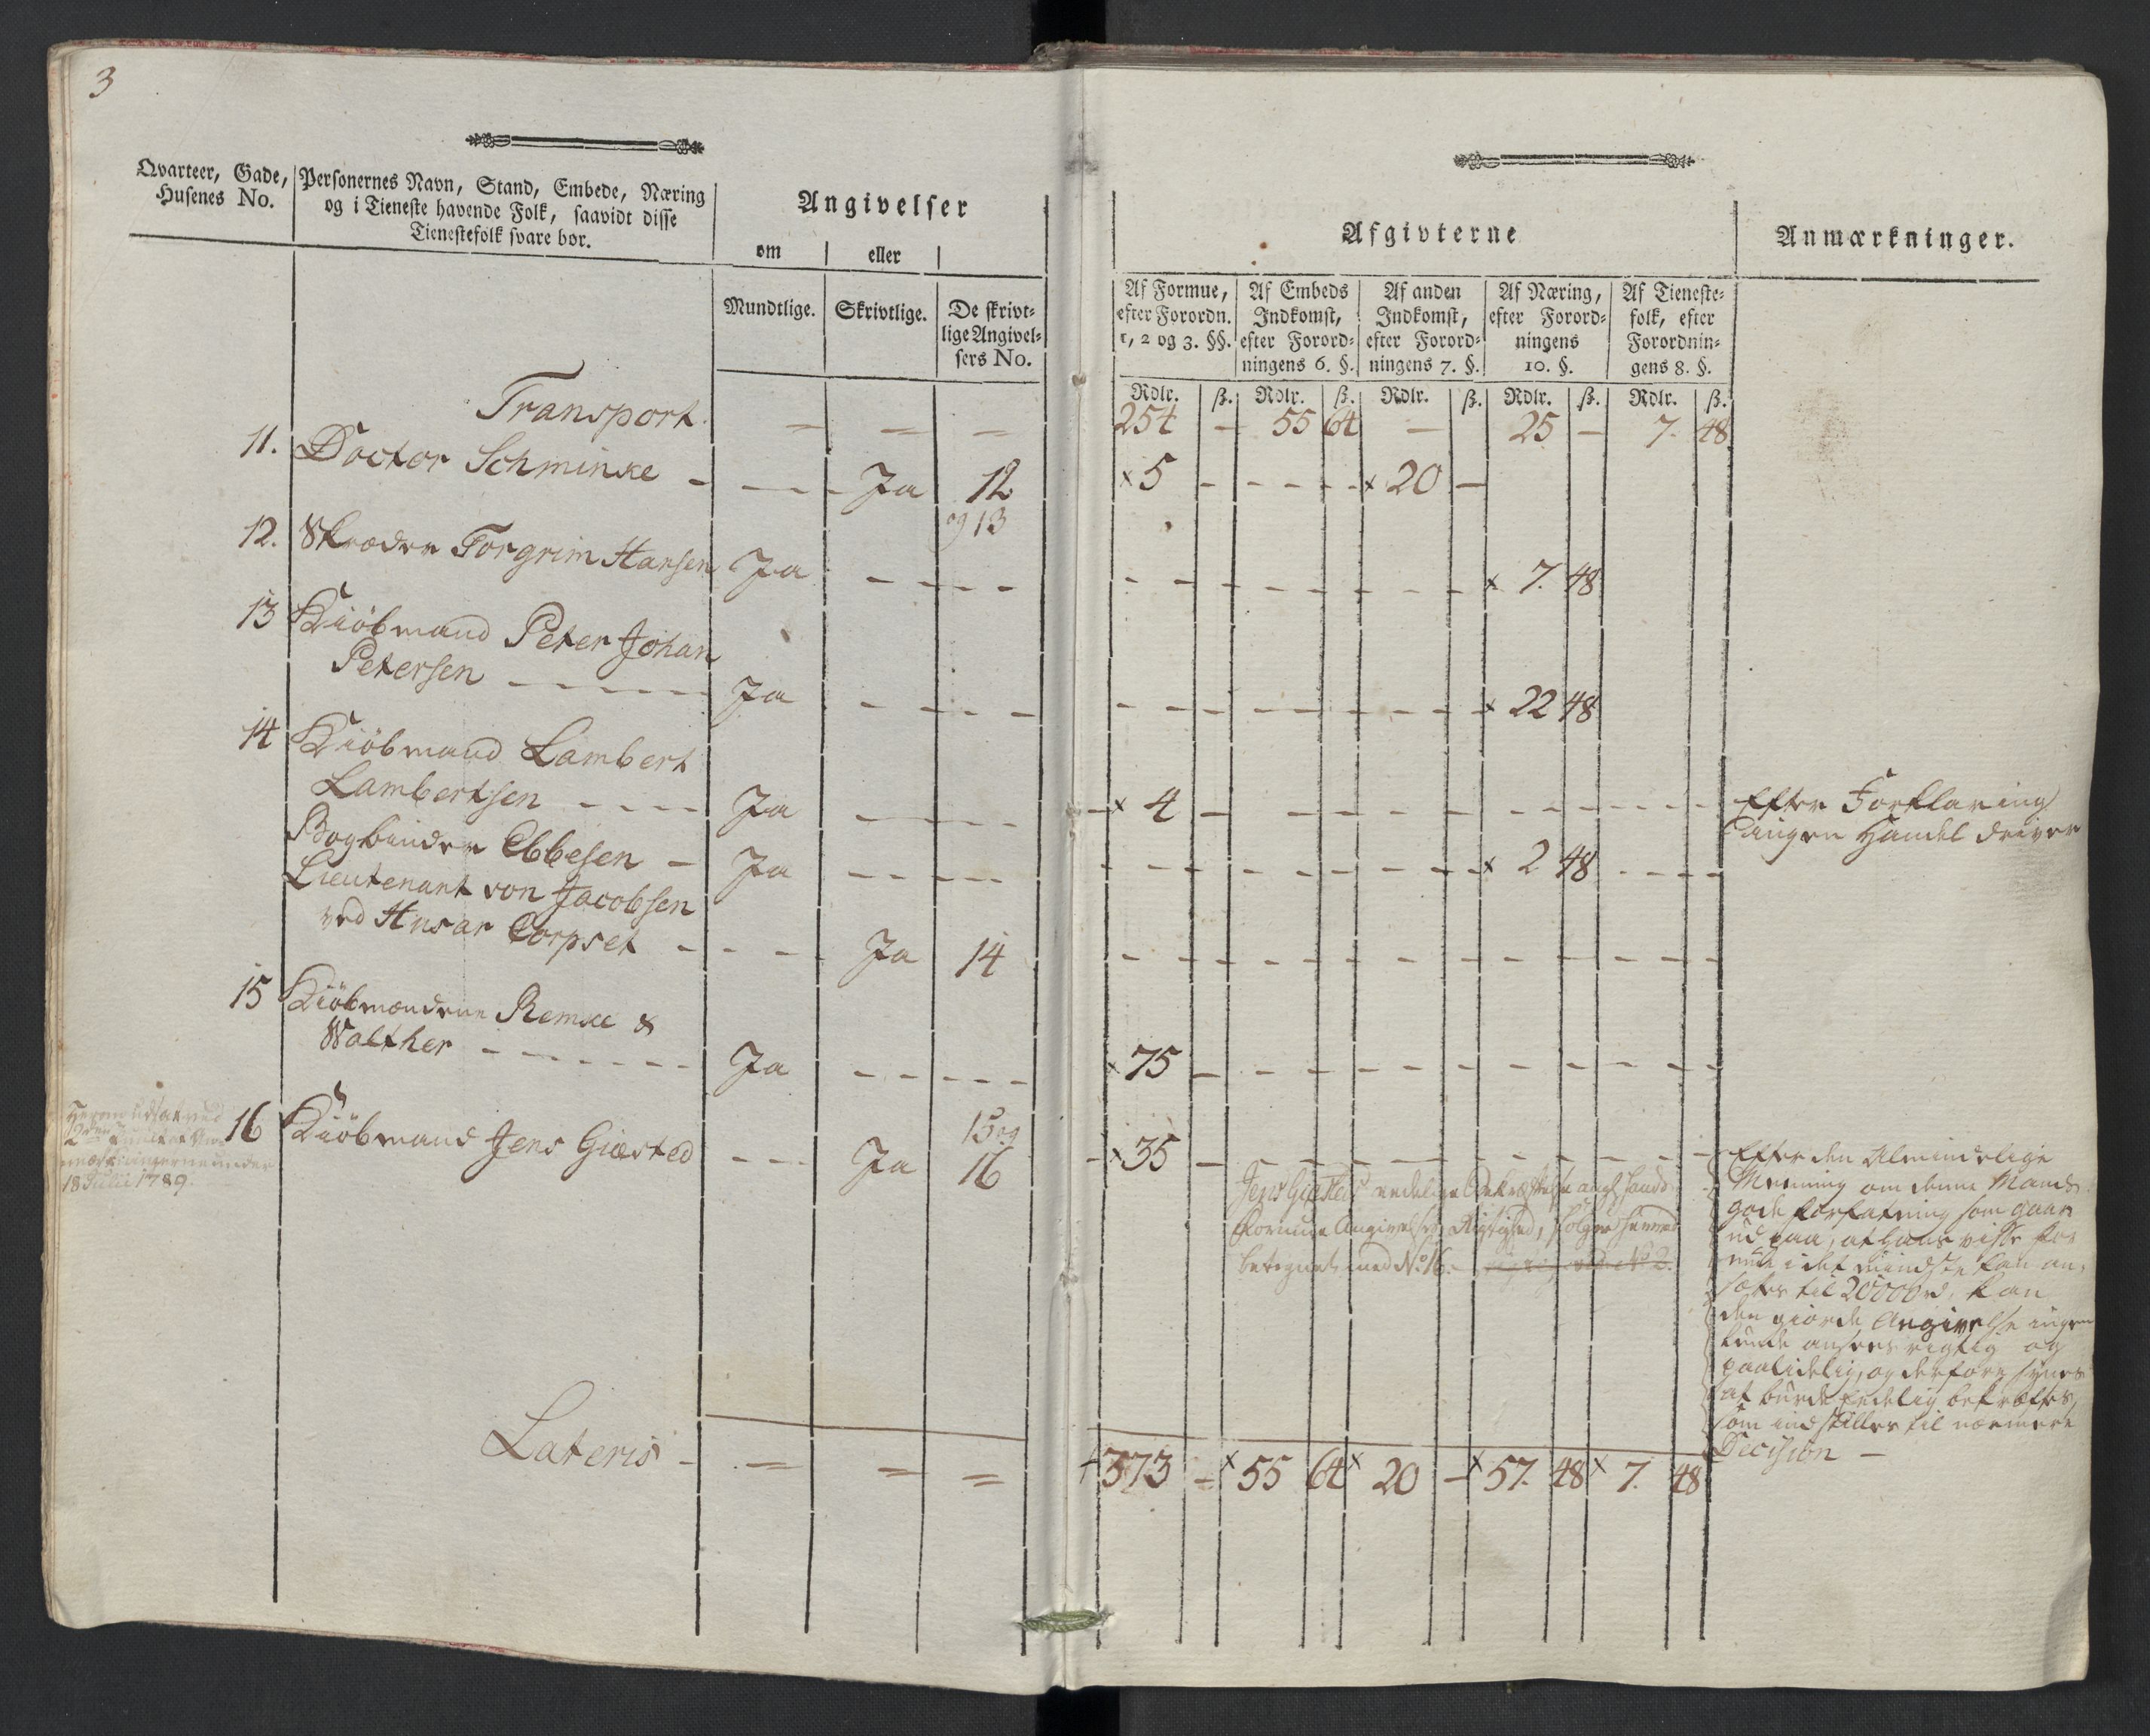 3
Qvarteer, Gade, Husenes No.
Personernes Navn, Stand, Embede, Næring og i Tieneste havende Folk, saavidt disse Tienestefolk svare bør.
Angivelser
om eller
Mundtlige. Skrivtlige. De skrivtlige Angivelsers No.
Afgivterne
Anmærkninger.
Af Formue, efter Forordn. 1, 2 og 3. §§.
Af Embeds Indkomst, efter Forordningens 6. §.
Af anden Indkomst, efter Forordningens 7. §.
Af Næring, efter Forordningens 10. §.
Af Tienestefolk, efter Forordningens 8. §.
Rdlr. ß. Rdlr. ß. Rdlr. ß. Rdlr. ß. Rdlr. ß.
Transport. = = = 254 - 55 64 - 25 - 7. 48
11. Doctor Schminke - - - - Ja 12 × 5 - - - - - × 20 -
og 13
12. Skræder Torgrim Hansen Ja - - - - - - - - - - - × 7. 48
13 Kiöbmand Peter Johan
Petersen - - - - - Ja - - - - - - - - - - - × 22 48
14 Kiöbmand Lambert
Lambertsen - - - - Ja - - - - × 4 - - - - - - - - - Efter Forklaring
ingen Handel driver
Bogbinder Ebbesen - Ja - - - - - - - - - - - × 2 48 - - - -
Lieutenant von Jacobsen
ved Husar Corpset - - - Ja 14 - - - - - - - - - -
15 Kiöbmændene Remke &
Walther - - - - - - Ja - - - - × 75 - - - - - - - - -
Herom udsat ved
18 Julii 1789.
16 Kiöbmand Jens Giæsted - - - Ja 15 og
16 × 35 - - - - - - - - -
Jens Giæsteds
Formue Angivelses Rigtighed, følger herved
betegnet med No. 16.
Efter den Almindelige
Meening om denne Mands
gode Forfatning som gaar
ud paa, at hans visse For
mue i det mindste kan an-
sættes til 20000 rd, kan
den giorde Angivelse ingen
lunde ansees rigtig og
paalidelig, og derfore synes
at burde Eedelig bekræftes,
som indstilles til nærmere
Decision -
Lateris - = = = 373 - × 55 64 × 20 - × 57. 48 × 7. 48